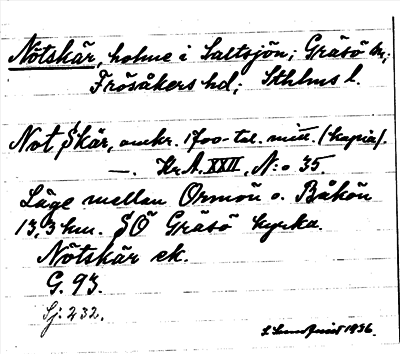 Nötskär, holme i Saltsjön; Gräsö sn;
Frösåkers hd; Sthlms l.
Not Skär, omkr. 1700-tal. mitt. (kopia).
—. Kr. A. XXII, N:o 35.
Läge mellan Ormön o. Båkön
13,3 km. SÖ Gräsö kyrka.
Nötskär ek.
G. 93.
Sj. 232.
S. Lundquist 1936.